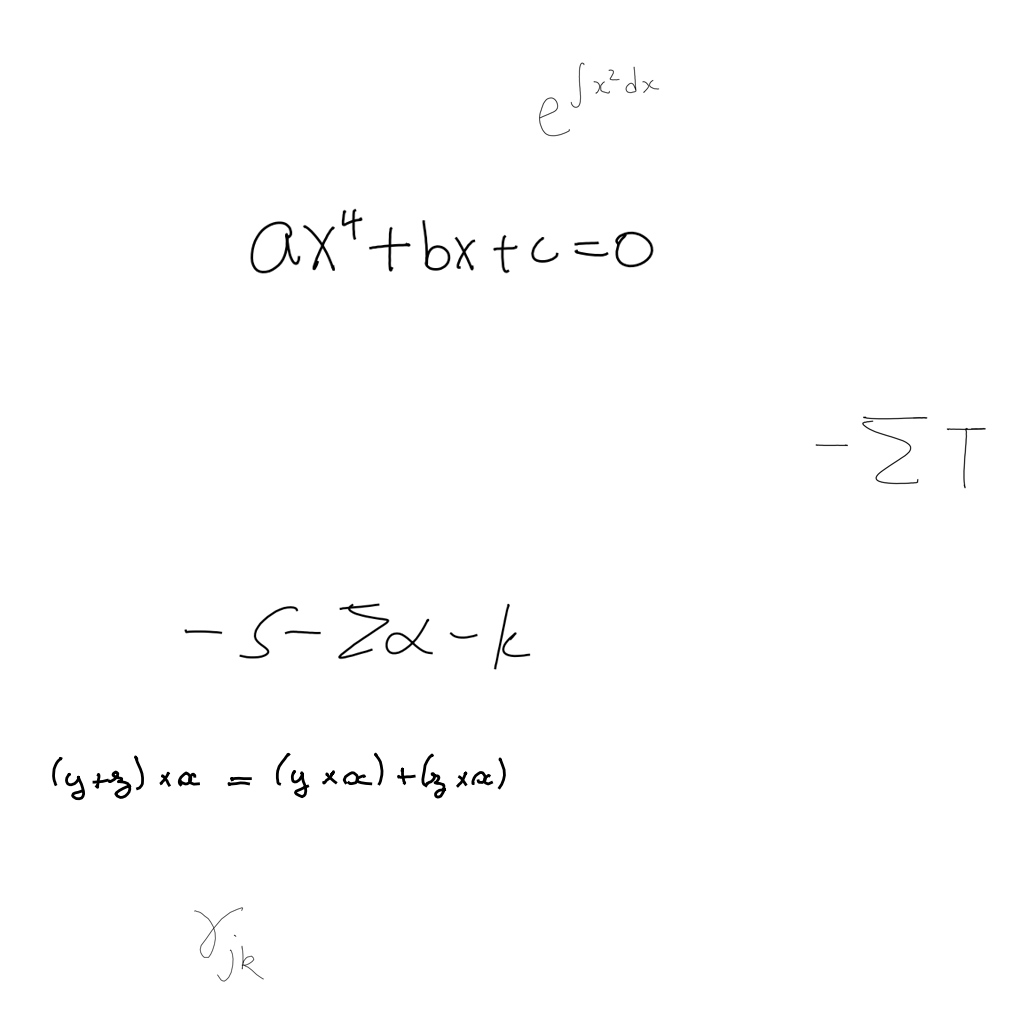 e^{\int x^2 dx}
ax^4+bx+c=0
-\sum T
-S-\sum \alpha-k
(y+z)\times x=(y\times x)+(z\times x)
\gamma_{jk}